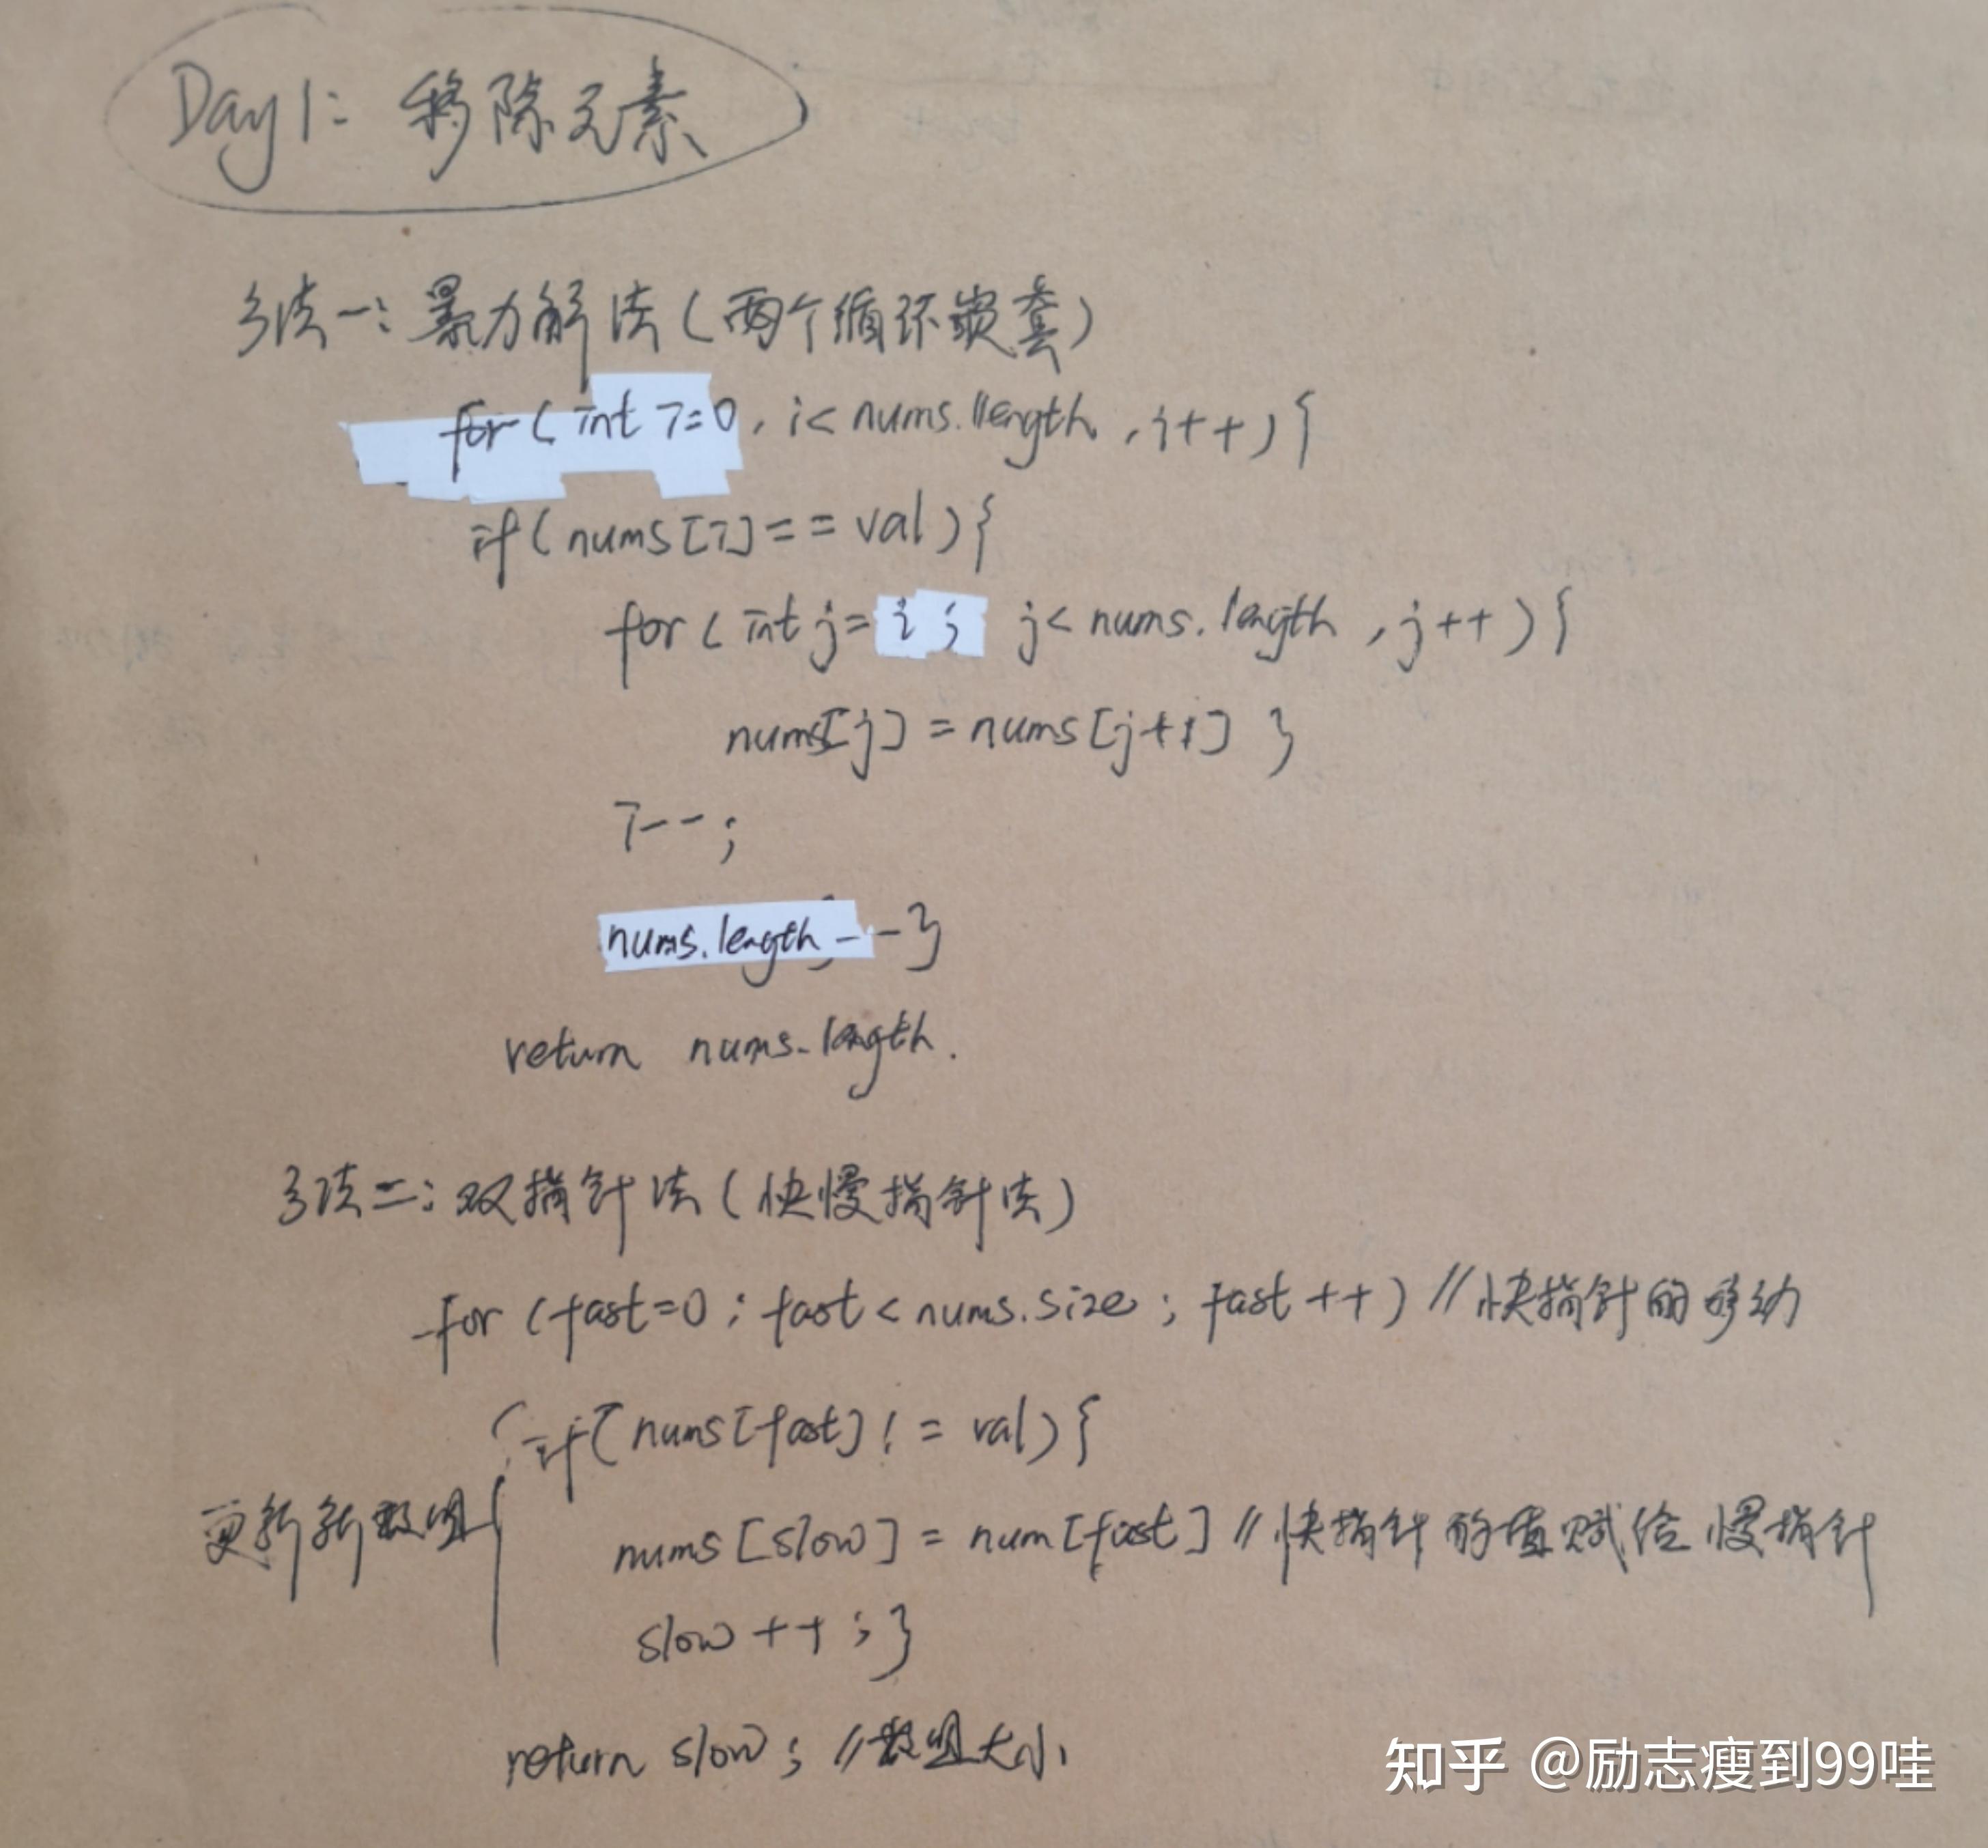 Day1: 移除元素
方法一: 暴力解法(两个循环嵌套)
for(int i=0, i<nums.length, i++){
if(nums[i]==val){
for(int j=i; j<nums.length, j++){
nums[j]=nums[j+1] }
i--;
nums.length--}
return nums.length.
方法二: 双指针法(快慢指针法)
for(fast=0; fast<nums.size; fast++) //快指针的移动
{if(nums[fast]!=val){
更新新数组
nums[slow]=num[fast] //快指针的值赋给慢指针
slow++;}
return slow; //数组大小
知乎 @励志瘦到99哇